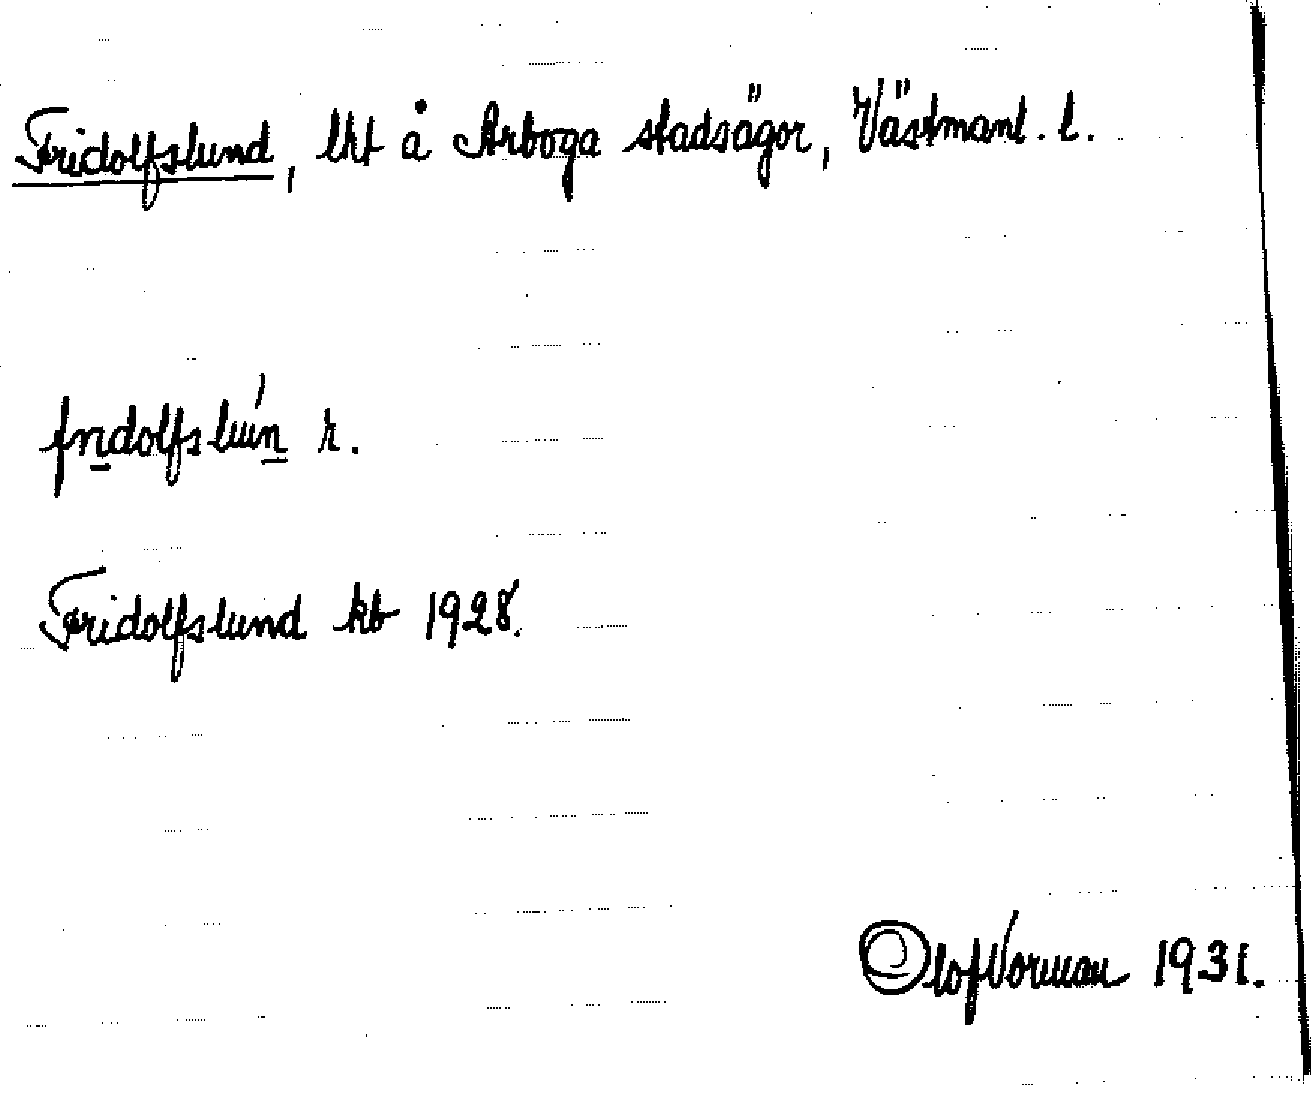 Fridolfslund, lht å Arboga stadsägor, Västmanl. l.
fridolfslun r.
Fridolfslund kb 1928.
Olof Norman 1931.